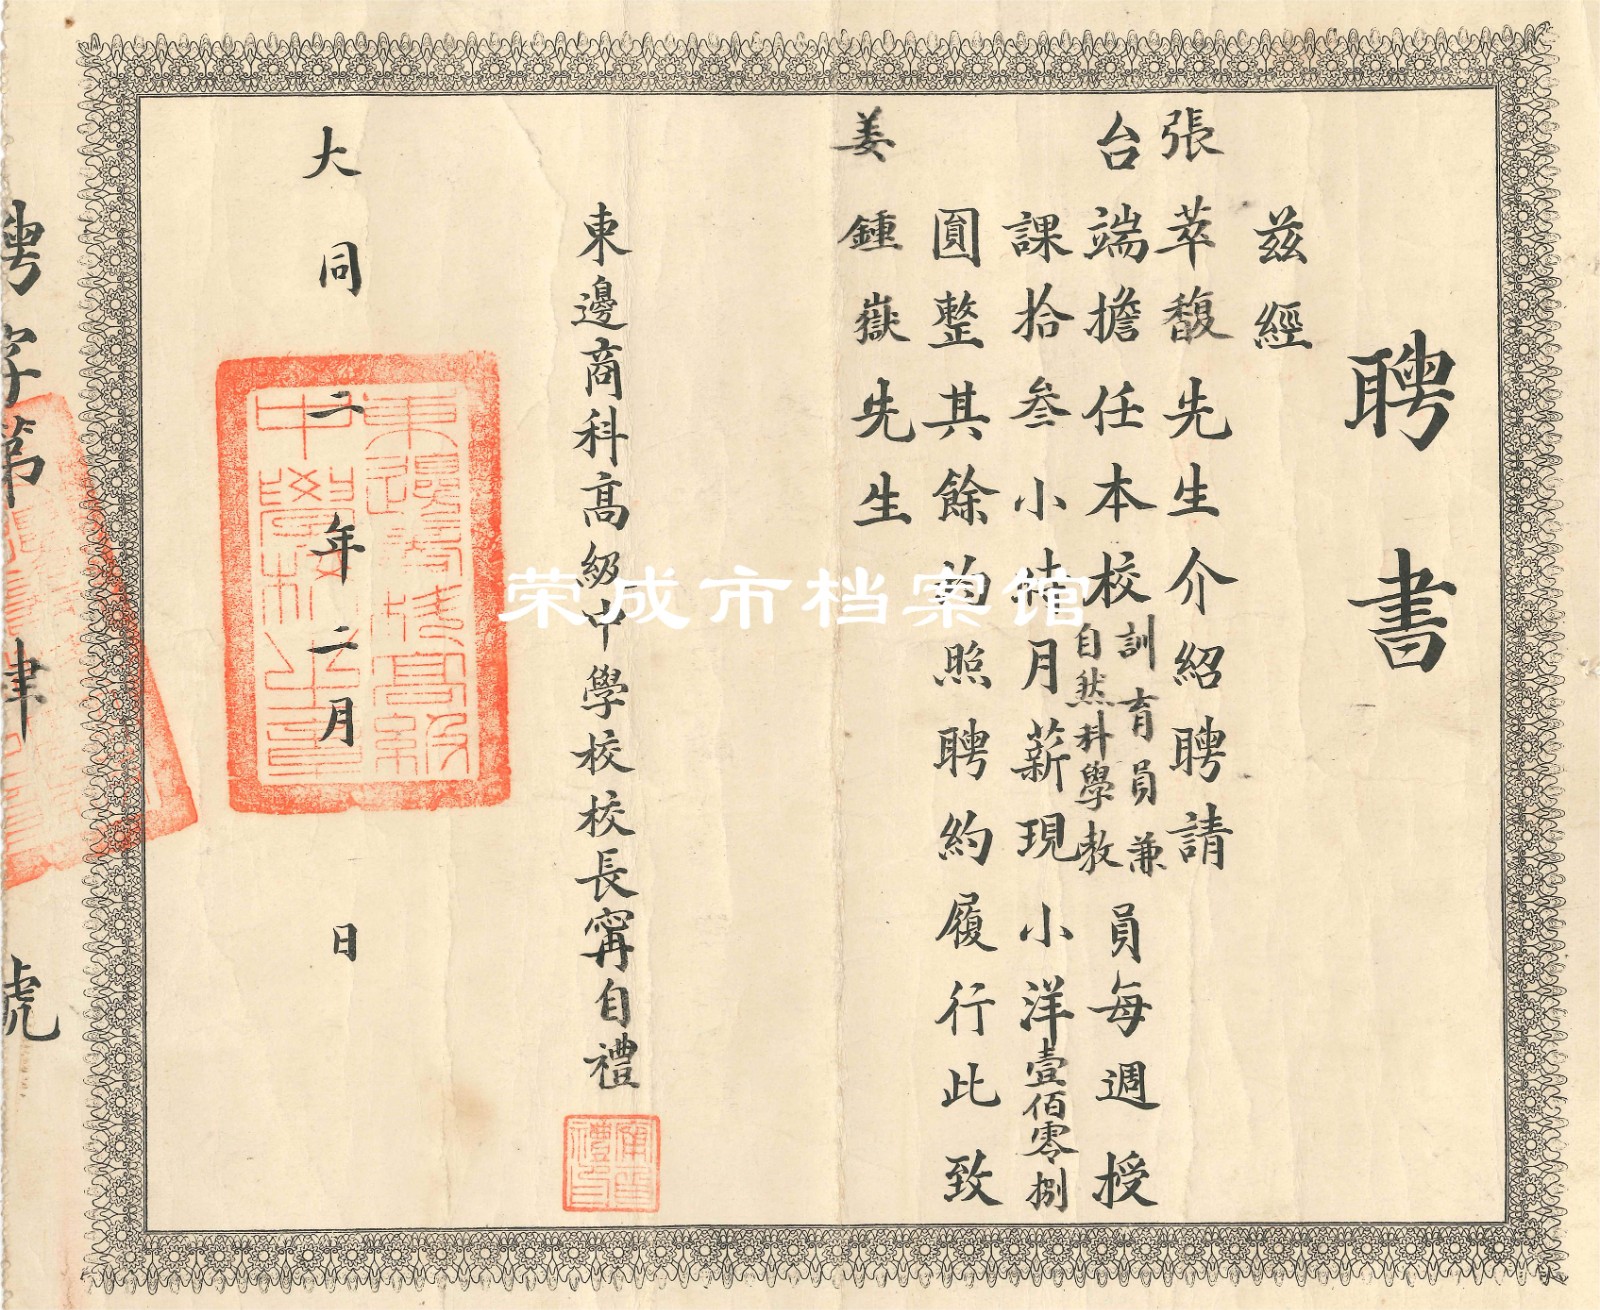 聘書
茲經
張萃馥先生介紹聘請
台端擔任本校訓育員兼自然科學教員每週授
課拾叁小時月薪現小洋壹佰零捌
圓整其餘均照聘約履行此致
姜鍾嶽先生
東邊商科高級中學校校長甯自禮
大同二年二月 日
聘字第 肆 號
東邊商科高級中學校之章
荣成市档案馆